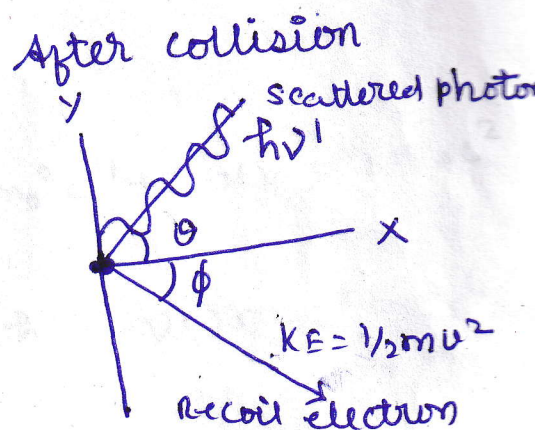 After collision
Y
scattered photon
hν'
θ
X
φ
KE = 1/2 mv²
Recoil electron